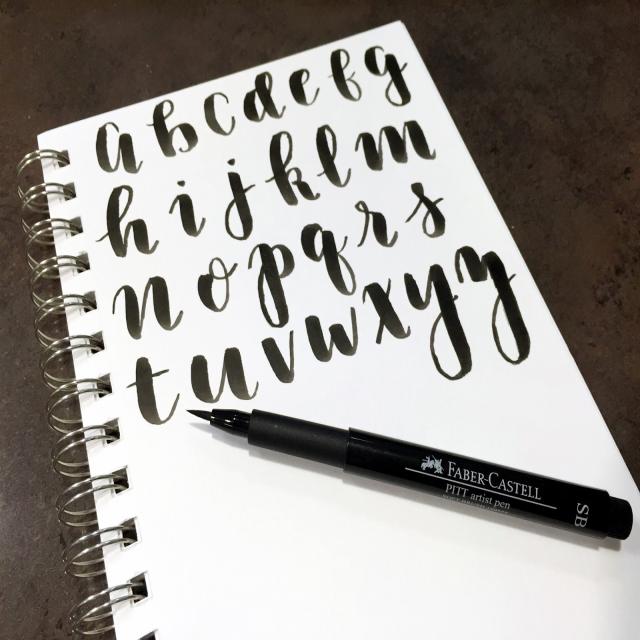 a b c d e f g
h i j k l m
n o p q r s
t u v w x y z
FABER-CASTELL
PITT artist pen
SB